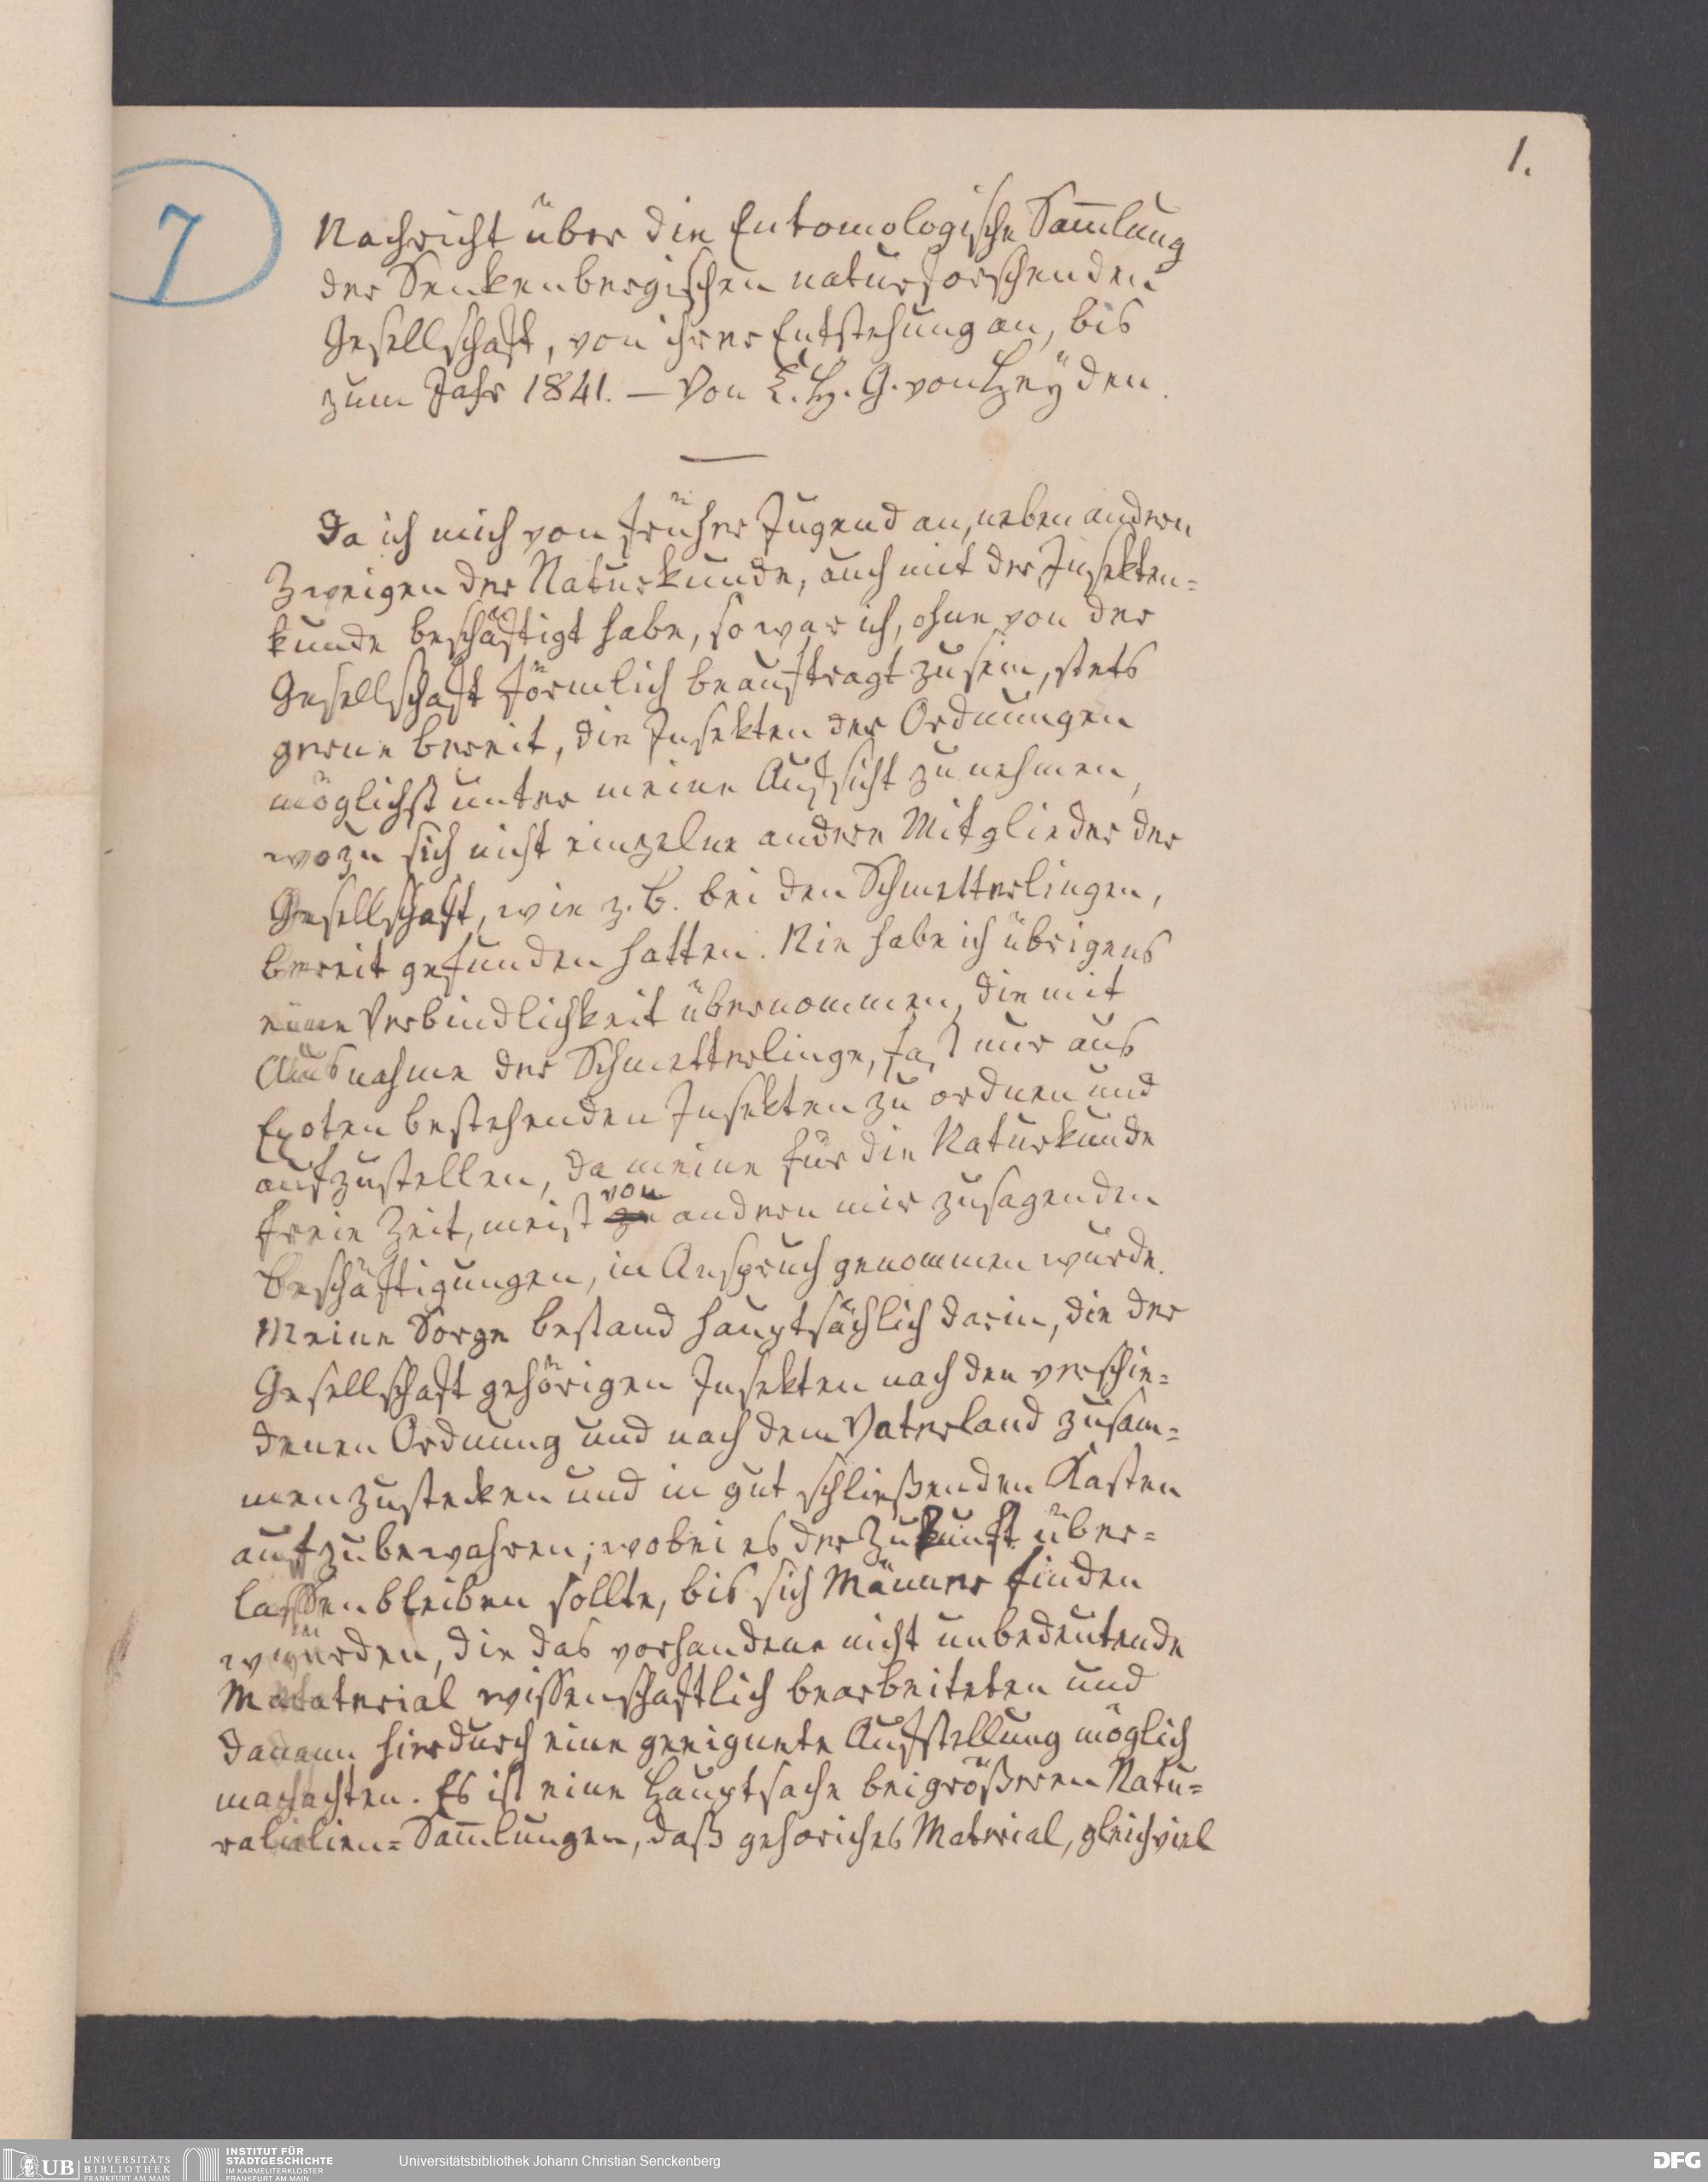 1.
7
Nachricht über die Entomologische Sam̄lung
der Senkenbergischen naturforschenden
Gesellschaft, von ihrer Entstehung an, bis
zum Jahr 1841. — Von C. H. G. von Heÿden.
Da ich mich von früher Jugend an, neben andern
Zweigen der Naturkunde, auch mit der Insekten=
kunde beschäftigt habe, so war ich, ohne von der
Gesellschaft förmlich beauftragt zu sein, stets
gerne bereit, die Insekten der Ordnungen
möglichst unter meine Aufsicht zu nehmen,
wozu sich nicht einzelne andere Mitglieder der
Gesellschaft, wie z. B. bei den Schmetterlingen,
bereit gefunden hatten. Nie habe ich übrigens
eine Verbindlichkeit übernommen, die mit
Ausnahme der Schmetterlinge, fast nur aus
Exoten bestehenden Insekten zu ordnen und
aufzustellen, da meine für die Naturkunde
freie Zeit, meist von andern mir zusagenden
Beschäftigungen, in Anspruch genommen wurde.
Meine Sorge bestand hauptsächlich darin, die der
Gesellschaft gehörigen Insekten nach den verschie=
denen Ordnung und nach dem Vaterland zusam=
menzustecken und in gut schließenden Kasten
aufzubewahren; wobei es der Zukunft über=
lassen bleiben sollte, bis sich Männer finden
würden, die das vorhandene nicht unbedeutende
Material wissenschaftlich bearbeiteten und
dann hierdurch eine geeignete Aufstellung möglich
machten. Es ist eine Hauptsache bei größeren Natu=
ralien=Sam̄lungen, daß gehöriches Material, gleichviel
UB UNIVERSITÄTS
BIBLIOTHEK
FRANKFURT AM MAIN
INSTITUT FÜR
STADTGESCHICHTE
IM KARMELITERKLOSTER
FRANKFURT AM MAIN
Universitätsbibliothek Johann Christian Senckenberg
DFG